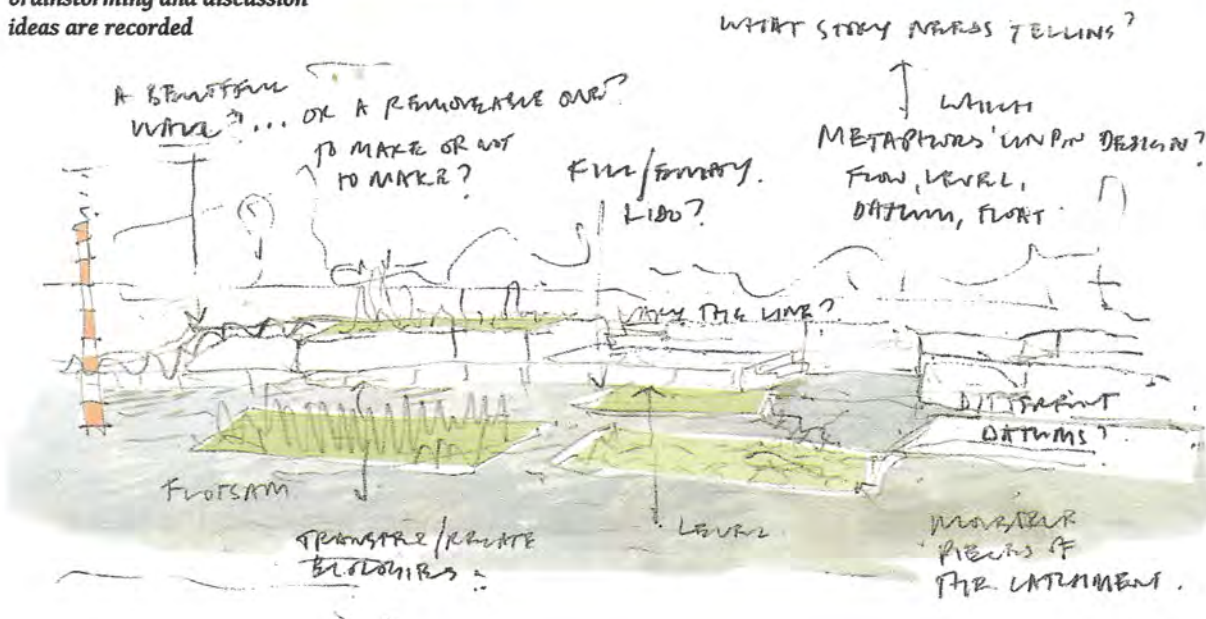 brainstorming and discussion
ideas are recorded
WHAT STORY NEEDS TELLING?
A BEAUTIFUL
WALL?... OR A REMOVEABLE ONE?
TO MAKE OR NOT
TO MAKE?
FILL/EMPTY.
LIDO?
WHICH
METAPHORS UNPIN DESIGN?
FLOW, LEVEL,
DATUM, FLOAT
VARY THE LINE?
DIFFERENT
DATUMS?
FLOTSAM
TRANSFER/RELATE
ECOLOGIES.
LEVEL
PIECES OF
THE CATCHMENT.